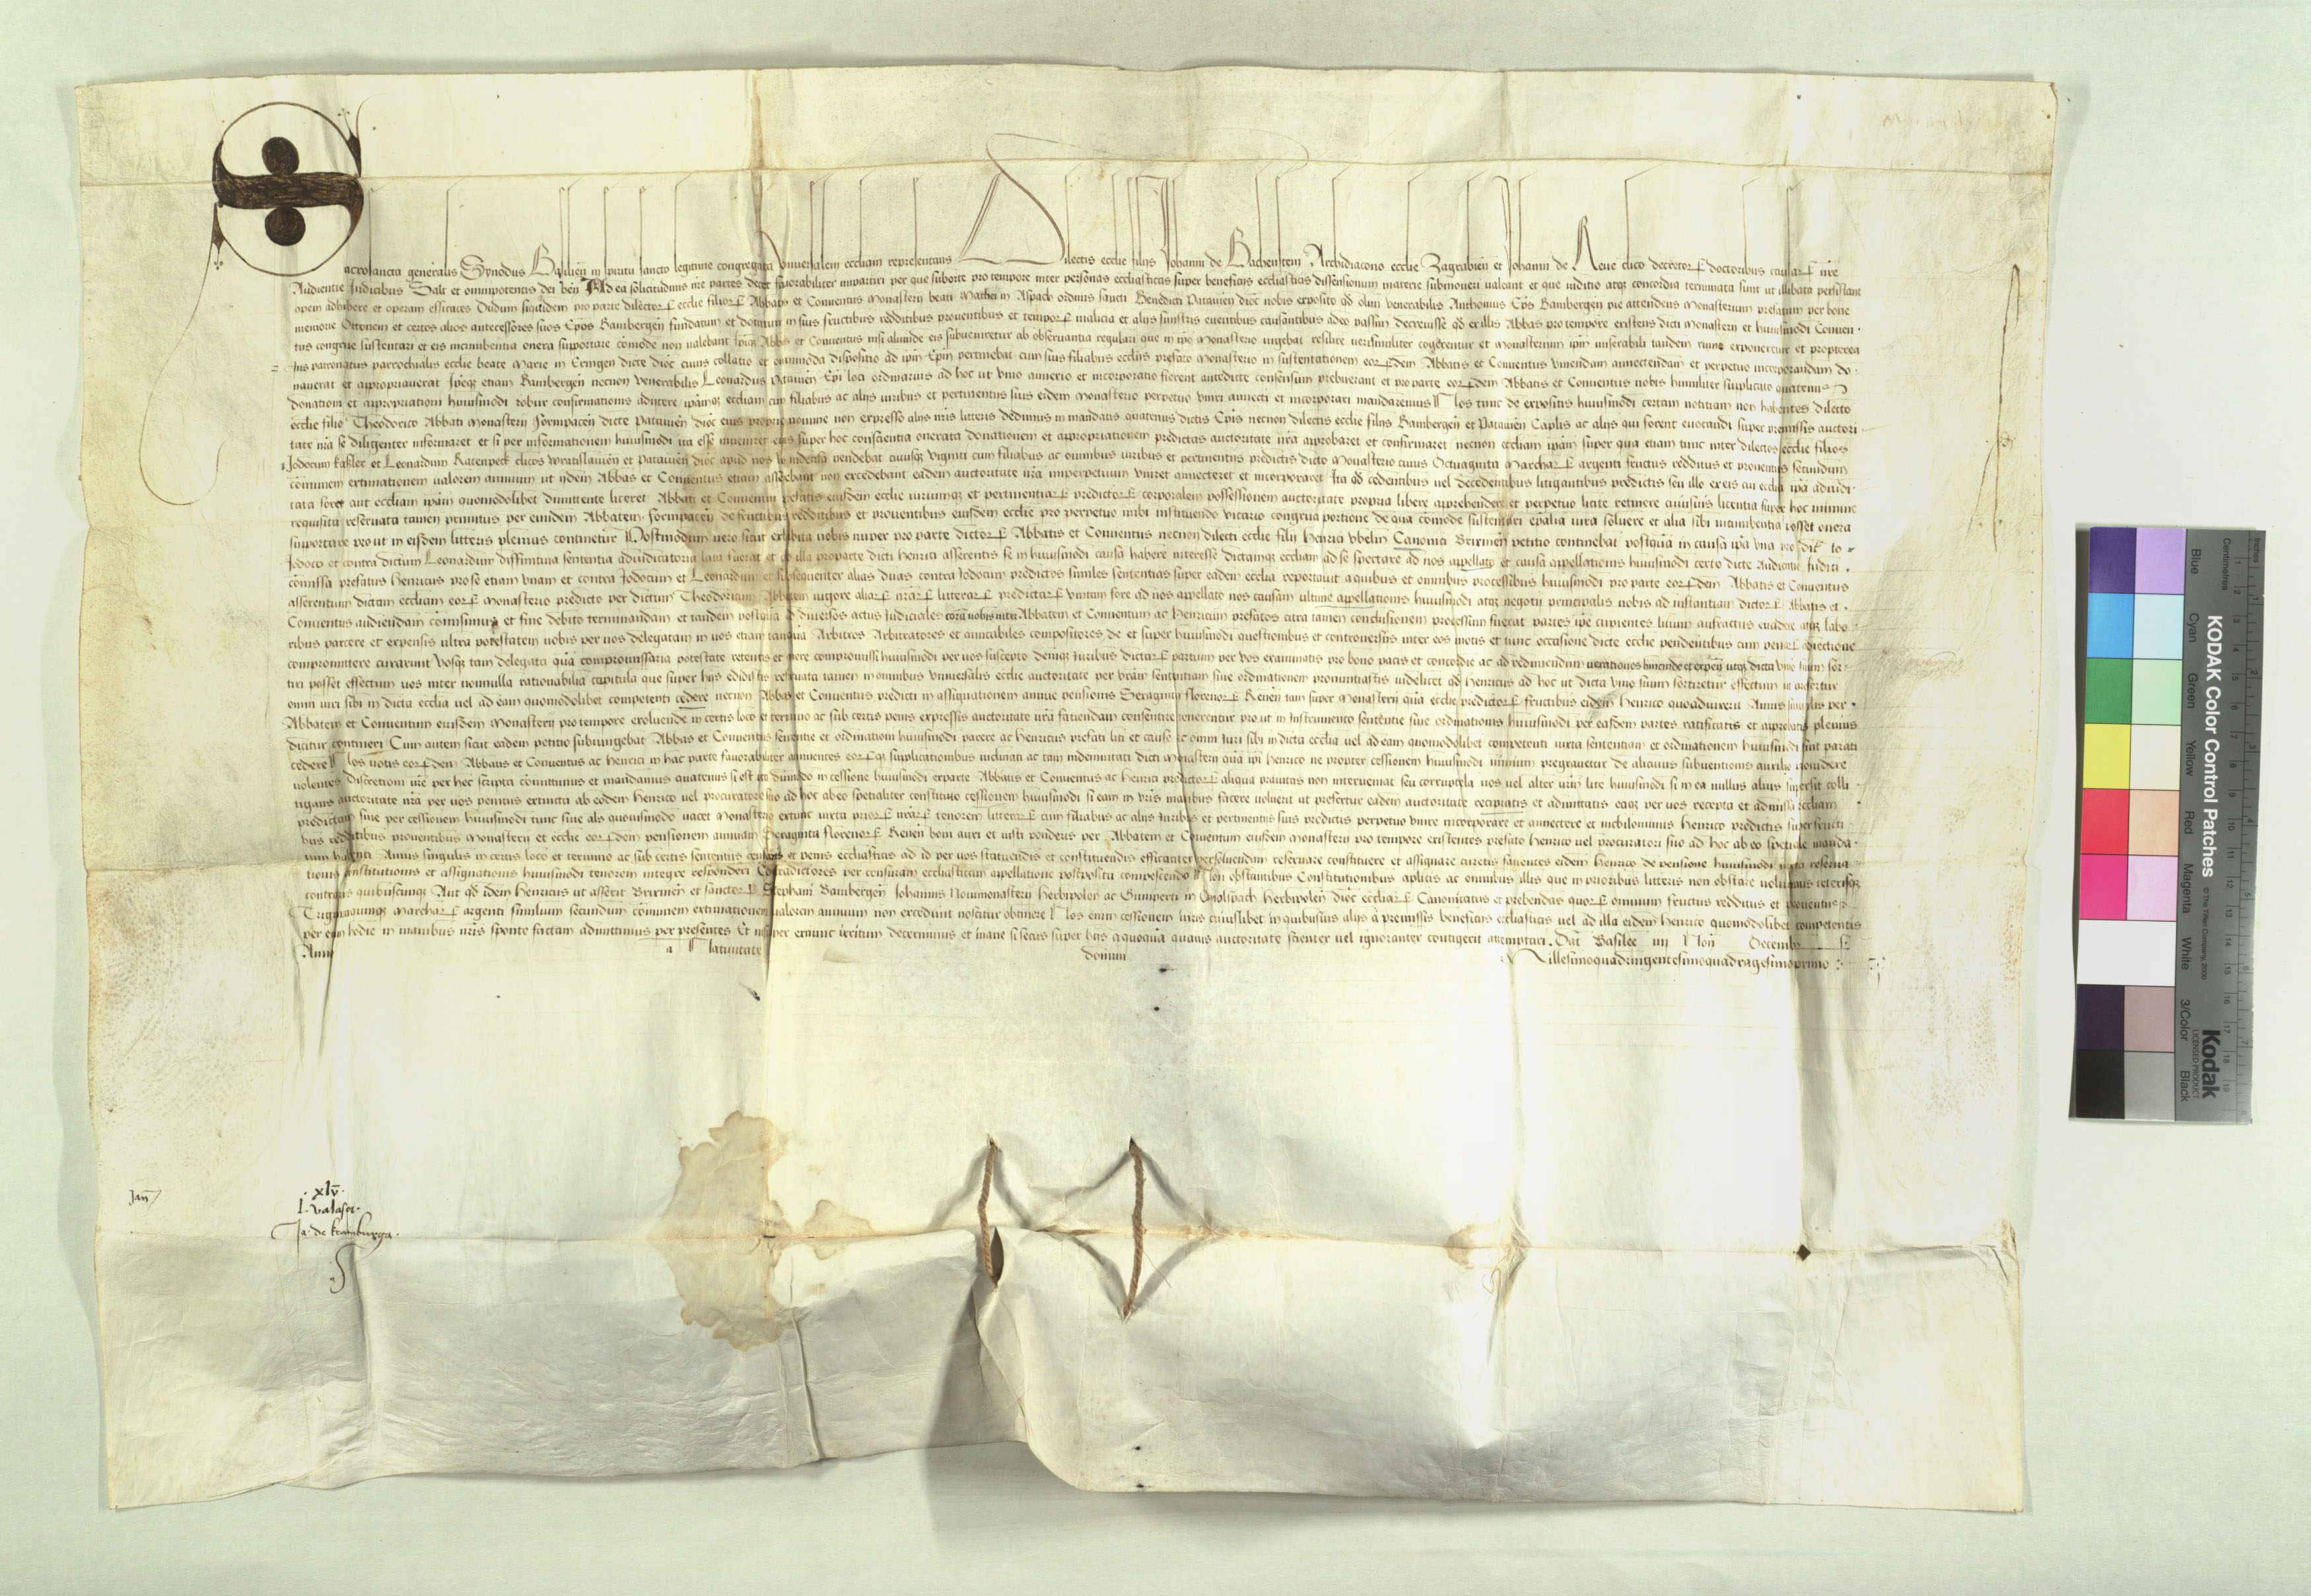 Sacrosancta generalis Synodus Basilien̄ in spiritu sancto legitime congregata Universalem eccliam representans Dilectis ecclie filijs Johanni de Bachenstein Archidiacono ecclie Zagrabien̄ et Johanni de Neve clico decretorꝝ doctoribus causarꝝ nr̄e
Audientie Judicibus Salt̄ et omnipotentis dei ben̄ Ad ea solicitudinis nr̄e partes decet favorabiliter impartiri per que suborte pro tempore inter personas ecclesiasticas super beneficijs ecclesiasticis dissensionum materie submoveri valeant et que iuditio atqꝫ concordia terminata sunt ut illibata persistant
opem adhibere et operam efficaces Dudum siquidem pro parte dilectorꝝ ecclie filiorꝝ Abbatis et Conventus Monasterij beati Mathei in Aspach ordinis sancti Benedicti Patavien̄ dioc̄ nobis exposito qd̄ olim venerabilis Anthonius Ep̄s Bambergen̄ pie attendens Monasterium prefatum per bone
memorie Ottonem et certos alios antecessores suos Ep̄os Bambergen̄ fundatum et dotatum in suis fructibus redditibus proventibus et temporꝝ malicia et alijs sinistris eventibus causantibus adeo passim decrevisse qd̄ ex illis Abbas pro tempore existens dicti Monasterij et huiusmodi Conven
tus congrue sustentari et eis incumbentia onera supportare com̄ode non valebant ipiqꝫ Abbas et Conventus nisi aliunde eis subveniretur ab observantia regulari que in ipo Monasterio vigebat resilire verisimiliter cogerentur et monasterium ipm̄ miserabili tandem ruine exponeretur et propterea
Jus patronatus parrochialis ecclie beate Marie in Eringen dicte dioc̄ cuius collatio et om̄imoda dispositio ad ipm̄ Ep̄m pertinebat cum suis filiabus ecclijs prefato Monasterio in sustentationem eorꝝdem Abbatis et Conventus vniendam annectendam et perpetuo incorporandam do
naverat et appropriaverat Ipeqꝫ etiam Bambergen̄ necnon venerabilis Leonardus Patavien̄ Ep̄i loci ordinarius ad hoc ut vnio annexio et incorporatio fierent antedicte consensum prebuerant et pro parte eorꝝdem Abbatis et Conventus nobis humiliter supplicato quatenus
donationi et appropriationi huiusmodi robur confirmationis adijcere ipamqꝫ eccliam cum filiabus ac alijs iuribus et pertinentijs suis eidem Monasterio perpetuo vniri annecti et incorporari mandaremus Nos tunc de expositis huiusmodi certam notitiam non habentes dilecto
ecclie filio Theodorico Abbati Monasterij Formpacen̄ dicte Patavien̄ dioc̄ eius proprio nomine non expresso alijs nr̄is litteris dedimus in mandatis quatenus dictis Ep̄is necnon dilectis ecclie filijs Bambergen̄ et Patavien̄ Caplis ac alijs qui forent evocandi super premissis auctori
tate nr̄a se diligenter informaret et si per informationem huiusmodi ita esse inveniret eius super hoc conscientia onerata donationem et appropriationem predictas auctoritate nr̄a approbaret et confirmaret necnon eccliam ipam super qua etiam tunc inter dilectos ecclie filios
Jodocum Kasler et Leonardum Ratenpeck clicos Wratislavien̄ et Patavien̄ dioc̄ apud nos lis indecisa pendebat cuiusqꝫ viginti cum filiabus ac omnibus iuribus et pertinentijs predictis dicto Monasterio cuius Octuaginta Marcharꝝ argenti fructus redditus et proventus secundum
com̄unem extimationem valorem annuum ut ijdem Abbas et Conventus etiam asserebant non excedebant eadem auctoritate nr̄a imperpetuum vniret annecteret et incorporaret Ita qd̄ cedentibus vel decedentibus litigantibus predictis seu illo ex eis cui ecclia ipa adiudi
cata foret aut eccliam ipam quomodolibet dimittente liceret Abbati et Conventui prefatis eiusdem ecclie iuriumqꝫ et pertinentiarꝝ predictorꝝ corporalem possessionem auctoritate propria libere apprehendere et perpetuo licite retinere cuiusvis licentia super hoc minime
requisita reservata tamen primitus per eundem Abbatem Formpacen̄ de fructibus redditibus et proventibus eiusdem ecclie pro perpetuo inibi instituendo vicario congrua portione de qua com̄ode sustentari ep̄alia iura solvere et alia sibi incumbentia posset onera
supportare pro ut in eisdem litteris plenius continetur Postmodum vero sicut exhibita nobis nuper pro parte dictorꝝ Abbatis et Conventus necnon dilecti ecclie filij Henrici Ubelin Canonici Brixinen̄ petitio continebat postqua in causa ipa vna pro dic̄to
Jodoco et contra dictum Leonardum diffinitiva sententia adiudicatoria lata fuerat et ab illa pro parte dicti Henrici asserentis se in huiusmodi causa habere interesse dictamqꝫ eccliam ad se spectare ad nos appellato et causa appellationis huiusmodi certo dicte Audientie Judici
com̄issa prefatus Henricus pro se etiam vnam et contra Jodocum et Leonardum et subsequenter alias duas contra Jodocum predictos similes sententias super eadem ecclia reportavit a quibus et omnibus processibus huiusmodi pro parte eorꝝdem Abbatis et Conventus
asserentium dictam eccliam eorꝝ Monasterio predicto per dictum Theodoricum Abbatem vigore aliarꝝ nr̄arꝝ litterarꝝ predictarꝝ vnitam fore ad nos appellato nos causam ultime appellationis huiusmodi atqꝫ negotij principalis vobis ad instantiam dictorꝝ Abbatis et
Conventus audiendam com̄isimus et fine debito terminandam et tandem postqua ad diversos actus Judiciales coram vobis inter Abbatem et Conventum ac Henricum prefatos citra tamen conclusionem processum fuerat partes ipe cupientes litium anfractus evadere atqꝫ labo
ribus parcere et expensis ultra potestatem vobis per nos delegatam in vos etiam tanqua Arbitros Arbitratores et amicabiles compositores de et super huiusmodi questionibus et controversijs inter eos motis et tunc occasione dicte ecclie pendentibus cum penarꝝ adiectione
compromittere curarunt Vosqꝫ tam delegata qua compromissaria potestate retentis et onere compromissi huiusmodi per vos suscepto demum iuribus dictarꝝ partium per vos examinatis pro bono pacis et concordie ac ad redimendum vexationes hincinde et expen̄ utqꝫ dicta vnio suum sor
tiri posset effectum vos inter nonnulla rationabilia capitula que super hijs edidistis reservata tamen in omnibus vniversalis ecclie auctoritate per vram sententiam sive ordinationem pronuntiastis videlicet qd̄ Henricus ad hoc ut dicta vnio suum sortiretur effectum ut prefertur
omni iuri sibi in dicta ecclia vel ad eam quomodolibet competenti cedere necnon Abbas et Conventus predicti in assignationem annue pensionis Sexaginta florenorꝝ Renen̄ tam super Monasterij qua ecclie predictorꝝ fructibus eidem Henrico quoadvixerit Annis singulis per
Abbatem et Conventum eiusdem Monasterij pro tempore exolvende in certis loco et termino ac sub certis penis expressis auctoritate nr̄a faciendam consentire tenerentur pro ut in Instrumento sententie sive ordinationis huiusmodi per easdem partes ratificatis et approbatis plenius
dicitur contineri Cum autem sicut eadem petitio subiungebat Abbas et Conventus sententie et ordinationi huiusmodi parere ac Henricus prefati liti et cause ac omni Juri sibi in dicta ecclia vel ad eam quomodolibet competenti iuxta sententiam et ordinationem huiusmodi sint parati
cedere Nos votis eorꝝdem Abbatis et Conventus ac Henrici in hac parte favorabiliter annuentes eorꝝqꝫ supplicationibus inclinati ac tam indemnitati dicti Monasterij qua ipi Henrico ne propter cessionem huiusmodi nimium pregravetur de alicuius subventionis auxilio providere
volentes discretioni vr̄e per hec scripta com̄ittimus et mandamus quatenus si est ita dum̄odo in cessione huiusmodi ex parte Abbatis et Conventus ac Henrici predictorꝝ aliqua pravitas non interveniat seu corruptela vos vel alter vrm̄ lite huiusmodi si in ea nullus alius supersit colli
tigans auctoritate nr̄a per vos penitus extincta ab eodem Henrico vel procuratore suo ad hoc ab eo specialiter constituto cessionem huiusmodi si eam in vris manibus facere voluerit ut prefertur eadem auctoritate recipiatis et admittatis eaqꝫ per vos recepta et admissa eccliam
predictam sive per cessionem huiusmodi tunc sive als quovismodo vacet Monasterio extunc iuxta priorꝝ nr̄arꝝ tenorem litterarꝝ cum filiabus ac alijs Juribus et pertinentijs suis predictis perpetuo vnire incorporare et annectere et nichilominus Henrico predictis super fructi
bus redditibus proventibus Monasterij et ecclie eorꝝdem pensionem annuam Sexaginta florenorꝝ Renen̄ boni auri et iusti ponderis per Abbatem et Conventum eiusdem Monasterij pro tempore existentes prefato Henrico vel procuratori suo ad hoc ab eo speciale manda
tum habenti Annis singulis in certis loco et termino ac sub certis sententijs censuris et penis ecclesiasticis ad id per vos statuendis et constituendis efficaciter persolvendam reservare constituere et assignare curetis facientes eidem Henrico de pensione huiusmodi iuxta reserva
tionis constitutionis et assignationis huiusmodi tenorem integre responderi Contradictores per censuram ecclesiasticam appellatione postposita compescendo Non obstantibus Constitutionibus aplicis ac omnibus illis que in prioribus litteris non obstare volumus ceterisqꝫ
contrarijs quibuscunqꝫ Aut qd̄ idem Henricus ut asserit Brixinen̄ et sanctorꝝ Stephani Bambergen̄ Johannis Novimonasterij Herbipolen̄ ac Gumperti in Onolspach Herbipolen̄ dioc̄ ecclarꝝ Canonicatus et prebendas quorꝝ omnium fructus redditus et proventus
Trigintaquinqꝫ Marcharꝝ argenti similium secundum com̄unem extimationem valorem annuum non excedunt noscitur obtinere Nos enim cessionem iuris cuiuslibet in quibusvis alijs a premissis beneficijs ecclesiasticis vel ad illa eidem Henrico quomodolibet competentis
per eum hodie in manibus nr̄is sponte factam admittimus per presentes Et insuper exnunc irritum decernimus et inane si secus super hijs a quoqua quavis auctoritate scienter vel ignoranter contigerit attemptari. Dat̄ Basilee iiij Non̄ Decembr̄
Anno a Nativitate domini Millesimoquadringentesimoquadragesimoprimo
Jan̄
xlv.
Ja. de Kramburga.